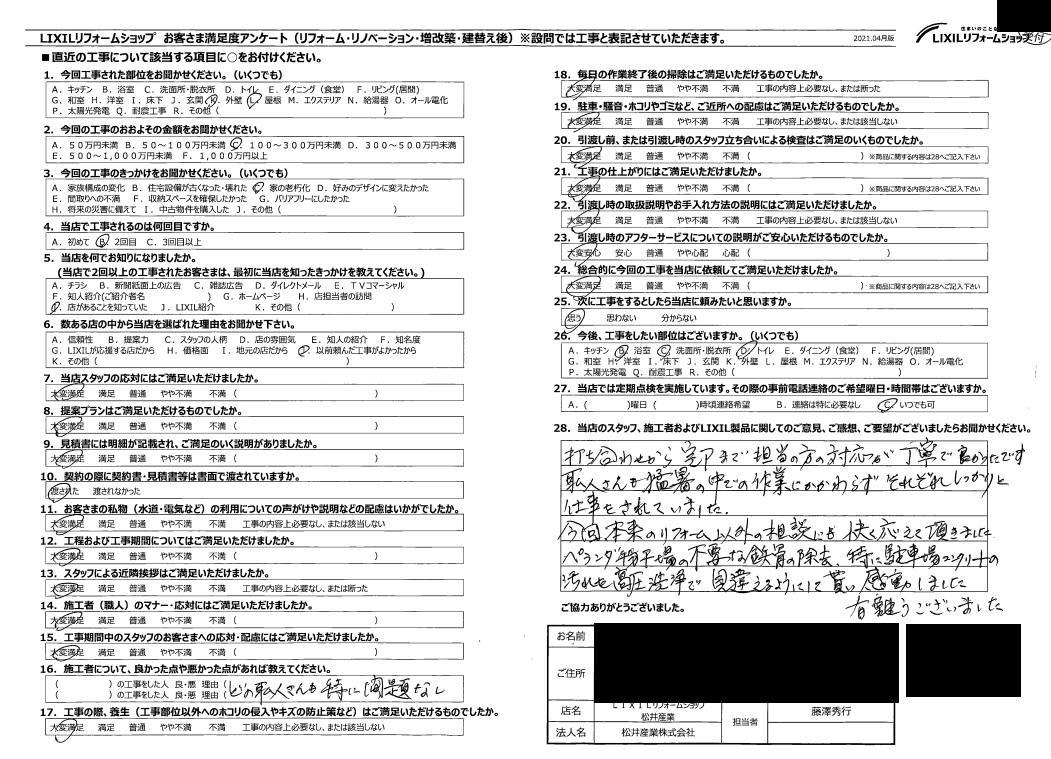 LIXILリフォームショップ お客さま満足度アンケート（リフォーム・リノベーション・増改築・建替え後）※設問では工事と表記させていただきます。
2021.04月版
住まいのことな
LIXILリフォームショップ
受付
■直近の工事について該当する項目に○をお付けください。
1．今回工事された部位をお聞かせください。（いくつでも）
A．キッチン B．浴室 C．洗面所・脱衣所 D．トイレ E．ダイニング（食堂） F．リビング(居間)
G．和室 H．洋室 I．床下 J．玄関 K．外壁 L．屋根 M．エクステリア N．給湯器 O．オール電化
P．太陽光発電 Q．耐震工事 R．その他（ ）
2．今回の工事のおおよその金額をお聞かせください。
A．50万円未満 B．50～100万円未満 C．100～300万円未満 D．300～500万円未満
E．500～1,000万円未満 F．1,000万円以上
3．今回の工事のきっかけをお聞かせください。（いくつでも）
A．家族構成の変化 B．住宅設備が古くなった・壊れた C．家の老朽化 D．好みのデザインに変えたかった
E．間取りへの不満 F．収納スペースを確保したかった G．バリアフリーにしたかった
H．将来の災害に備えて I．中古物件を購入した J．その他（ ）
4．当店で工事されるのは何回目ですか。
A．初めて B．2回目 C．3回目以上
5．当店を何でお知りになりましたか。
(当店で2回以上の工事されたお客さまは、最初に当店を知ったきっかけを教えてください。)
A．チラシ B．新聞紙面上の広告 C．雑誌広告 D．ダイレクトメール E．TVコマーシャル
F．知人紹介(ご紹介者名 ) G．ホームページ H．店担当者の訪問
I．店があることを知っていた J．LIXIL紹介 K．その他（ ）
6．数ある店の中から当店を選ばれた理由をお聞かせ下さい。
A．信頼性 B．提案力 C．スタッフの人柄 D．店の雰囲気 E．知人の紹介 F．知名度
G．LIXILが応援する店だから H．価格面 I．地元の店だから J．以前頼んだ工事がよかったから
K．その他（ ）
7．当店スタッフの応対はご満足いただけましたか。
大変満足 満足 普通 やや不満 不満 （ ）
8．提案プランはご満足いただけるものでしたか。
大変満足 満足 普通 やや不満 不満 （ ）
9．見積書には明細が記載され、ご満足のいく説明がありましたか。
大変満足 満足 普通 やや不満 不満 （ ）
10．契約の際に契約書・見積書等は書面で渡されていますか。
渡された 渡されなかった
11．お客さまの私物（水道・電気など）の利用についての声がけや説明などの配慮はいかがでしたか。
大変満足 満足 普通 やや不満 不満 工事の内容上必要なし、または該当しない
12．工程および工事期間についてはご満足いただけましたか。
大変満足 満足 普通 やや不満 不満 （ ）
13．スタッフによる近隣挨拶はご満足いただけましたか。
大変満足 満足 普通 やや不満 不満 工事の内容上必要なし、または断った
14．施工者（職人）のマナー・応対にはご満足いただけましたか。
大変満足 満足 普通 やや不満 不満 （ ）
15．工事期間中のスタッフのお客さまへの応対・配慮にはご満足いただけましたか。
大変満足 満足 普通 やや不満 不満 （ ）
16．施工者について、良かった点や悪かった点があれば教えてください。
（ ）の工事をした人 良・悪 理由（どの職人さんも特に問題なし
（ ）の工事をした人 良・悪 理由（
17．工事の際、養生（工事部位以外へのホコリの侵入やキズの防止策など）はご満足いただけるものでしたか。
大変満足 満足 普通 やや不満 不満 工事の内容上必要なし、または該当しない
18．毎日の作業終了後の掃除はご満足いただけるものでしたか。
大変満足 満足 普通 やや不満 不満 工事の内容上必要なし、または断った
19．駐車・騒音・ホコリやゴミなど、ご近所への配慮はご満足いただけるものでしたか。
大変満足 満足 普通 やや不満 不満 工事の内容上必要なし、または該当しない
20．引渡し前、または引渡し時のスタッフ立ち合いによる検査はご満足のいくものでしたか。
大変満足 満足 普通 やや不満 不満 （ ）※商品に関する内容は28へご記入下さい
21．工事の仕上がりにはご満足いただけましたか。
大変満足 満足 普通 やや不満 不満 （ ）※商品に関する内容は28へご記入下さい
22．引渡し時の取扱説明やお手入れ方法の説明にはご満足いただけましたか。
大変満足 満足 普通 やや不満 不満 工事の内容上必要なし、または該当しない
23．引渡し時のアフターサービスについての説明がご安心いただけるものでしたか。
大変安心 安心 普通 やや心配 心配 （ ）
24．総合的に今回の工事を当店に依頼してご満足いただけましたか。
大変満足 満足 普通 やや不満 不満 （ ）※商品に関する内容は28へご記入下さい
25．次に工事をするとしたら当店に頼みたいと思いますか。
思う 思わない 分からない
26．今後、工事をしたい部位はございますか。（いくつでも）
A．キッチン B．浴室 C．洗面所・脱衣所 D．トイレ E．ダイニング（食堂） F．リビング(居間)
G．和室 H．洋室 I．床下 J．玄関 K．外壁 L．屋根 M．エクステリア N．給湯器 O．オール電化
P．太陽光発電 Q．耐震工事 R．その他（ ）
27．当店では定期点検を実施しています。その際の事前電話連絡のご希望曜日・時間帯はございますか。
A．（ ）曜日（ ）時頃連絡希望 B．連絡は特に必要なし C．いつでも可
28．当店のスタッフ、施工者およびLIXIL製品に関してのご意見、ご感想、ご要望がございましたらお聞かせください。
打ち合わせから完了まで担当の方の対応が丁寧で良かったです
職人さんも猛暑の中での作業にかかわらずそれぞれしっかりと
仕事をされていました。
今回本来のリフォーム以外の相談にも快く応えて頂きました
ベランダ物干し場の不要な鉄骨の除去、特に駐車場コンクリートの
汚れを高圧洗浄で見違えるようにして貰い感動しました
有難うございました
ご協力ありがとうございました。
お名前
ご住所
店名 LIXILリフォームショップ
松井産業
担当者 藤澤秀行
法人名 松井産業株式会社